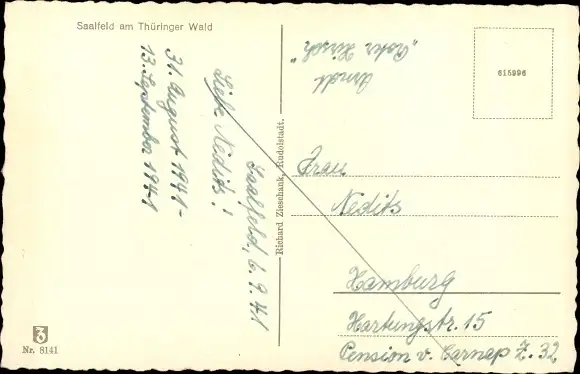 Saalfeld am Thüringer Wald
31. August 1941-
13. September 1941
Saalfeld, 6.9.41
Liebe Nedits!
Richard Zieschank, Rudolstadt.
Arndt
"Roter Hirsch"
615996
Frau
Nedits
Hamburg
Hartungstr. 15
Pension v. Carnap Z. 32
Nr. 8141